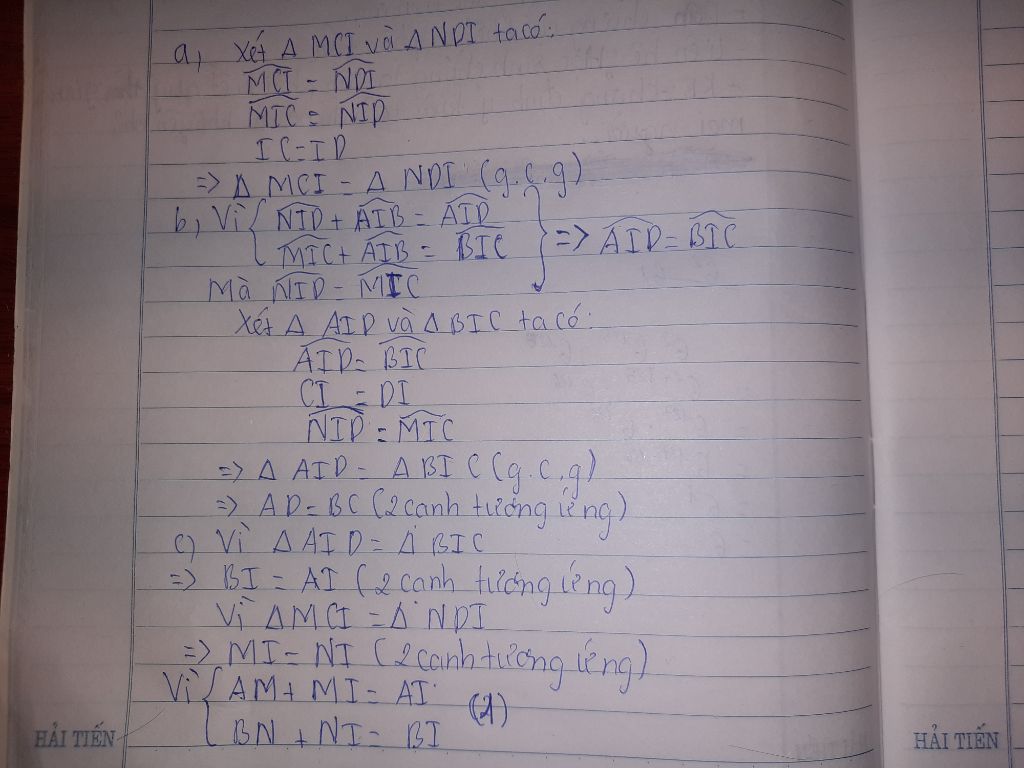 a, Xét Δ MCI và Δ NDI ta có:
\widehat{MCI} = \widehat{NDI}
\widehat{MIC} = \widehat{NID}
IC = ID
=> Δ MCI = Δ NDI (g.c.g)
b, Vì { \widehat{NID} + \widehat{AIB} = \widehat{AID}
\widehat{MIC} + \widehat{AIB} = \widehat{BIC} } => \widehat{AID} = \widehat{BIC}
Mà \widehat{NID} = \widehat{MIC}
Xét Δ AID và Δ BIC ta có:
\widehat{AID} = \widehat{BIC}
CI = DI
\widehat{NID} = \widehat{MIC}
=> Δ AID = Δ BIC (g.c.g)
=> AD = BC (2 canh tương ứng)
c, Vì Δ AID = Δ BIC
=> BI = AI (2 canh tương ứng)
Vì Δ MCI = Δ NDI
=> MI = NI (2 canh tương ứng)
Vì { AM + MI = AI
BN + NI = BI (1)
HẢI TIẾN
HẢI TIẾN